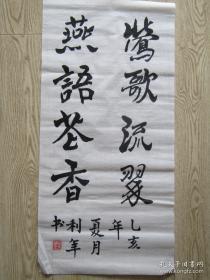 鶯歌流翠
燕語花香
乙亥
年
夏月
利年
书